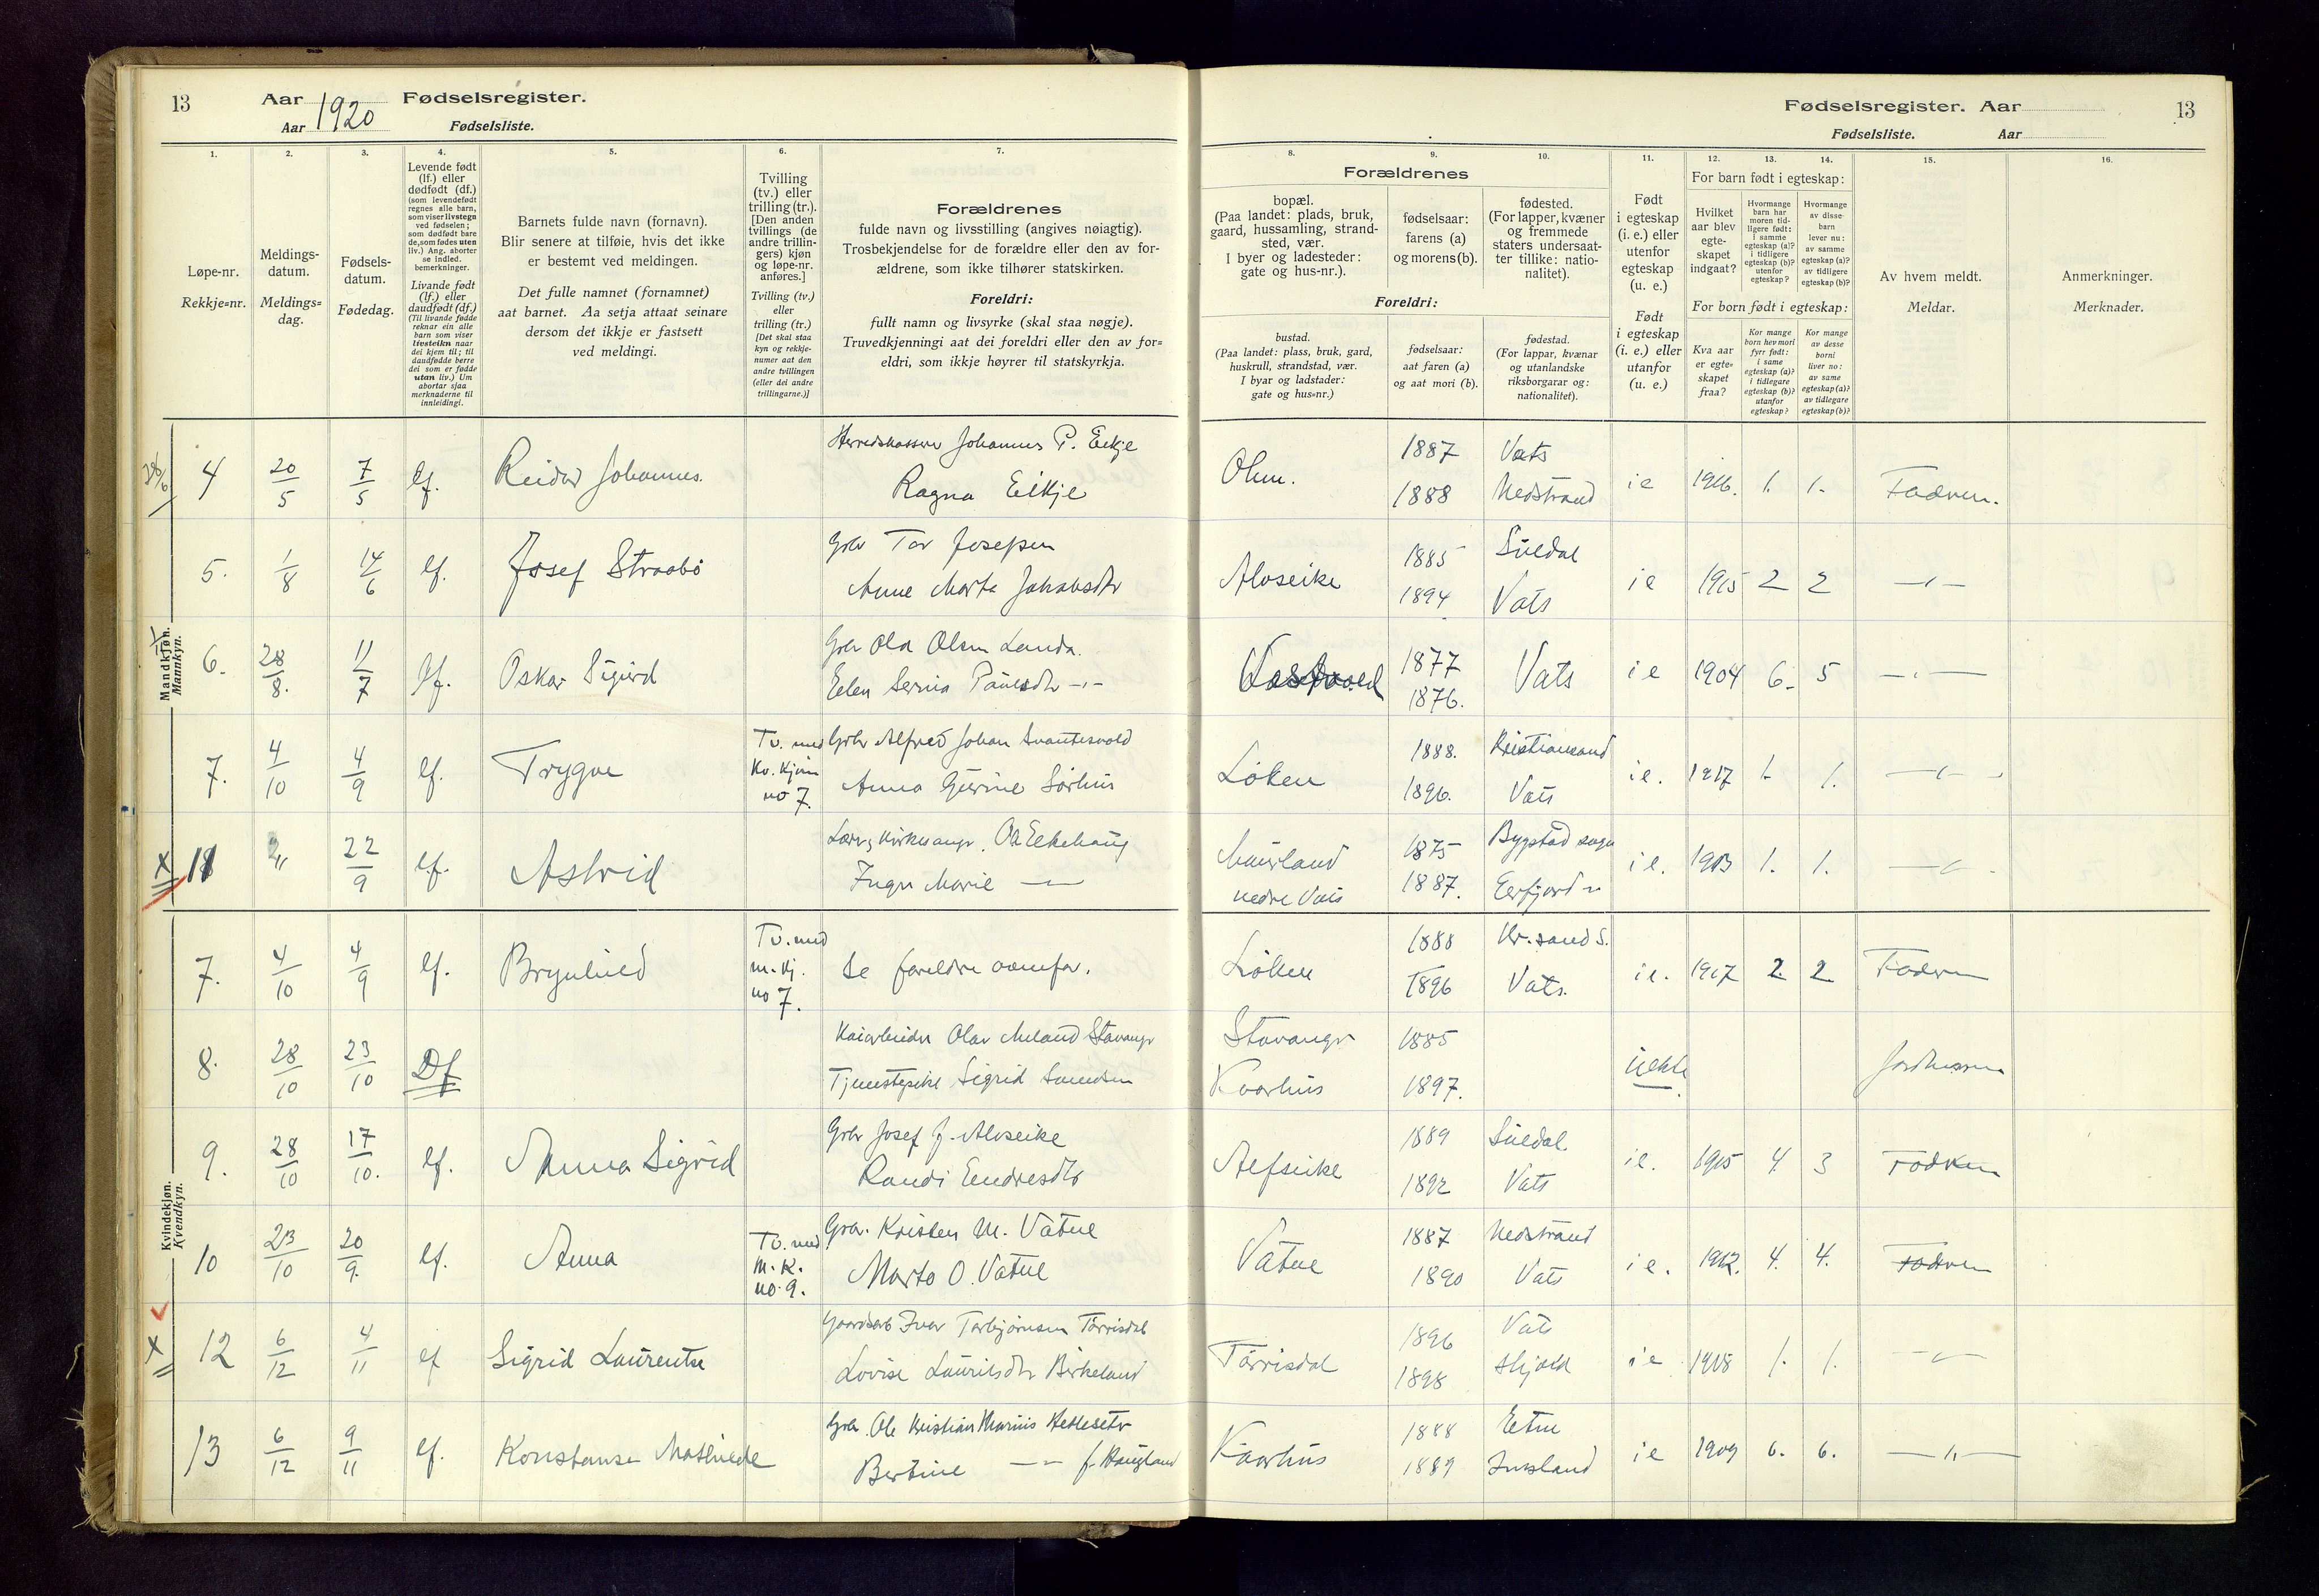 13 Aar 1920 Fødselsregister.
Aar Fødselsliste.
Fødselsregister. Aar 13
Fødselsliste. Aar
1. 2. 3. 4. 5. 6. 7. 8. 9. 10. 11. 12. 13. 14. 15. 16.
Løpe-nr.
Rekkje=nr.
Meldings-
datum.
Meldings=
dag.
Fødsels-
datum.
Fødedag.
Levende født
(lf.) eller
dødfødt (df.)
(som levendefødt
regnes alle barn,
som viser livstegn
ved fødselen;
som dødfødt bare
de, som fødes uten
liv.) Ang. aborter
se indled.
bemerkninger.
Livande født
(lf.) eller
daudfødt (df.)
(Til livande fødde
reknar ein alle
barn som viser
livsteikn naar
dei kjem til; til
daudfødde berre
dei som er fødde
utan liv.) Um
abortar sjaa
merknaderne til
innleidingi.
Barnets fulde navn (fornavn).
Blir senere at tilføie, hvis det ikke
er bestemt ved meldingen.
Det fulle namnet (fornamnet)
aat barnet. Aa setja attaat seinare
dersom det ikkje er fastsett
ved meldingi.
Tvilling
(tv.) eller
trilling (tr.).
[Den anden
tvillings (de
andre trillin-
gers) kjøn
og løpe-nr.
anføres.]
Tvilling (tv.)
eller
trilling (tr.)
[Det skal staa
kyn og rekkje-
numer aat den
andre tvillingen
(eller dei andre
trillingarne.)]
Forældrenes
fulde navn og livsstilling (angives nøiagtig).
Trosbekjendelse for de forældre eller den av for-
ældrene, som ikke tilhører statskirken.
Foreldri:
fullt namn og livsyrke (skal staa nøgje).
Truvedkjenningi aat dei foreldri eller den av for=
eldri, som ikkje høyrer til statskyrkja.
Forældrenes
bopæl.
(Paa landet: plads, bruk,
gaard, hussamling, strand-
sted, vær.
I byer og ladesteder:
gate og hus-nr.).
fødselsaar:
farens (a)
og morens (b).
fødested.
(For lapper, kvæner
og fremmede
staters undersaat-
ter tillike: natio-
nalitet).
Foreldri:
bustad.
(Paa landet: plass, bruk, gard,
huskrull, strandstad, vær.
I byar og ladstader:
gate og hus=nr.)
fødselsaar:
aat faren (a)
og aat mori (b).
fødestad.
(For lappar, kvænar
og utanlandske
riksborgarar og:
nationalitet).
Født
i egteskap
(i. e.) eller
utenfor
egteskap
(u. e.)
Født
i egteskap
(i. e.) eller
utanfor
(u. e.)
For barn født i egteskap:
Hvilket
aar blev
egte-
skapet
indgaat?
Hvormange
barn har
moren tid-
ligere født:
i samme
egteskap (a)?
i tidligere
egteskap (b)?
utenfor
egteskap?
Hvormange
av disse
barn
lever nu:
av samme
egteskap (a)?
av tidligere
egteskap (b)?
For born født i egteskap:
Kva aar
er egte-
skapet
fraa?
Kor mange
born hev mori
fyrr født:
i same
egteskap (a)?
i tidlegare
egteskap (b)?
utanfor
egteskap?
Kor mange
av desse
borni
liver no:
av same
egteskap (a)?
av tidlegare
egteskap (b)?
Av hvem meldt.
Meldar.
Anmerkninger.
Merknader.
Mandkjøn.
Mannkyn.
4 20/5 7/5 lf. Reidar Johannes. Herredskasserer Johannes P. Eikje Ragna Eikje Ølen. 1887 1888 Vats Nedstrand i e 1916. 1. 1. Faderen.
5. 1/8 14/6 lf. Josef Straabø Gbr Tor Josefsen Anne Marta Jakobsdtr Aloseike 1885 1894 Suldal Vats i e 1915 2 2 —〃—
6. 28/8. 11/7 lf. Oskar Sigurd Gbr Ola Olsen Landa. Elen Serina Paulsdtr —〃— 1877 1876. Vats i e 1904 6. 5 —〃—
7. 4/10 4/9 lf. Trygve Tv. med Kv. kjøn no 7. Gbr Alfred Johan Svantesvold Anna Gurine Sørhus Løken 1888. 1896. Kristiansand Vats i e. 1917 1. 1. —〃—
11 〃 22/9 lf. Astrid Inger Marie —〃— nedre Vats 1875 1887. Bygstad sogn i e. 1913 1. 1. —〃—
Kvindekjøn.
Kvendkyn.
7. 4/10 4/9 lf. Brynhild Tv. med m. kj. no 7. Se foreldre ovenfor. Løken 1888 1896 Kr. sand S. Vats. i e. 1917 2. 2 Faderen
8. 28/10 23/10 Df Kaiarbeider Olav Meland Stavanger Tjenestepike Sigrid Stavanger Kvarhus 1885 1897. uekte. Jordmoren
9. 28/10 17/10. lf. Anna Sigrid Gbr Josef J. Aloseike Randi Endresdtr 1889 1892 Suldal Vats i e. 1915 4 3 Faderen
10 23/10 20/9. lf. Anna Tv. med M. K. no. 9. Gbr. Kristen M. Vatne Marta O. Vatne Vatne 1887 1890 Nedstrand Vats i e. 1912. 4. 4. Faderen
12 6/12 4/11 lf Sigrid Laurentse Gaardbr Ivar Torbjørnsen Tørrisdal Lovise Lauritsdtr Birkeland Tørrisdal 1896 1898 Vats Skjold i e 1918 1. 1. —〃—
13 6/12 9/11 lf. Konstanse Mathilde Gbr. Ole Kristian Marius Bertine —〃— f. Haugland Kvarhus 1888 1889 Etne Imsland i e 1909 6. 6. —〃—